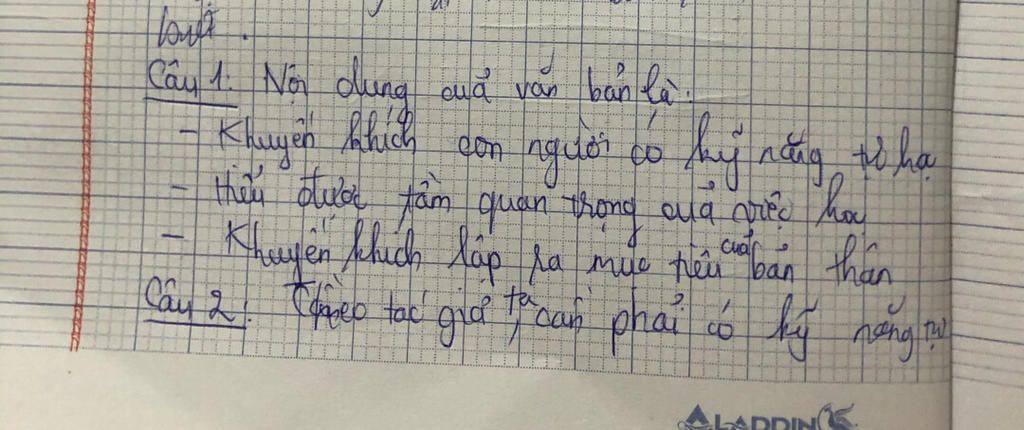 Câu 1: Nội dung cuả văn bản là:
- Khuyến khích con người có kỹ năng tự họ
- Hiểu được tầm quan trọng cuả việc học
- Khuyến khích lập ra mục tiêu cuả bản thân
Câu 2: Theo tác giả, ta cần phải có kỹ năng tự
ALADDIN